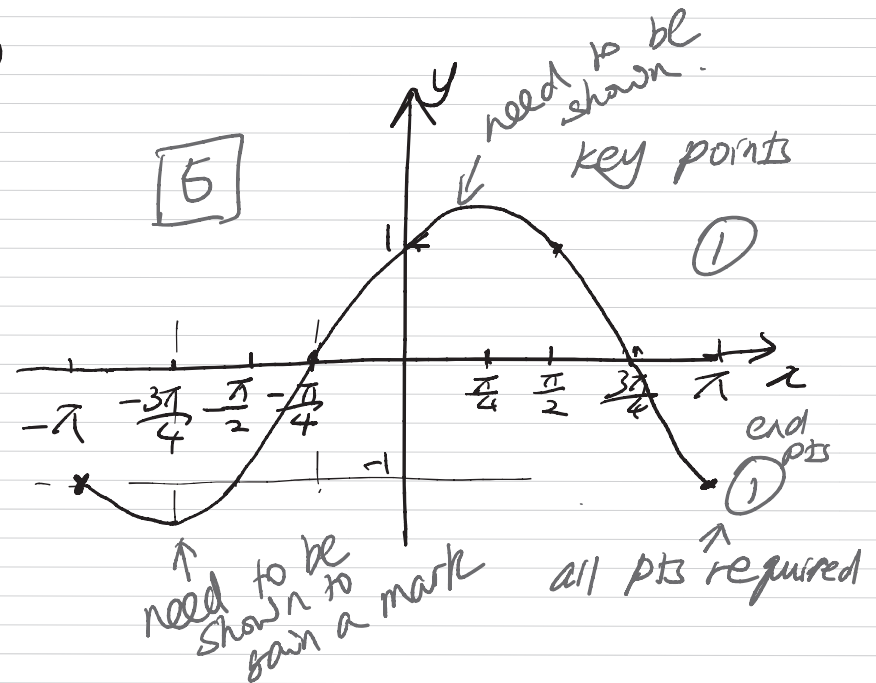 y
need to be
shown.
key points
5
1
1
-π
-3π/4
-π/2
-π/4
π/4
π/2
3π/4
π
x
-1
end
pts
1
need to be
shown to
gain a mark
all pts required